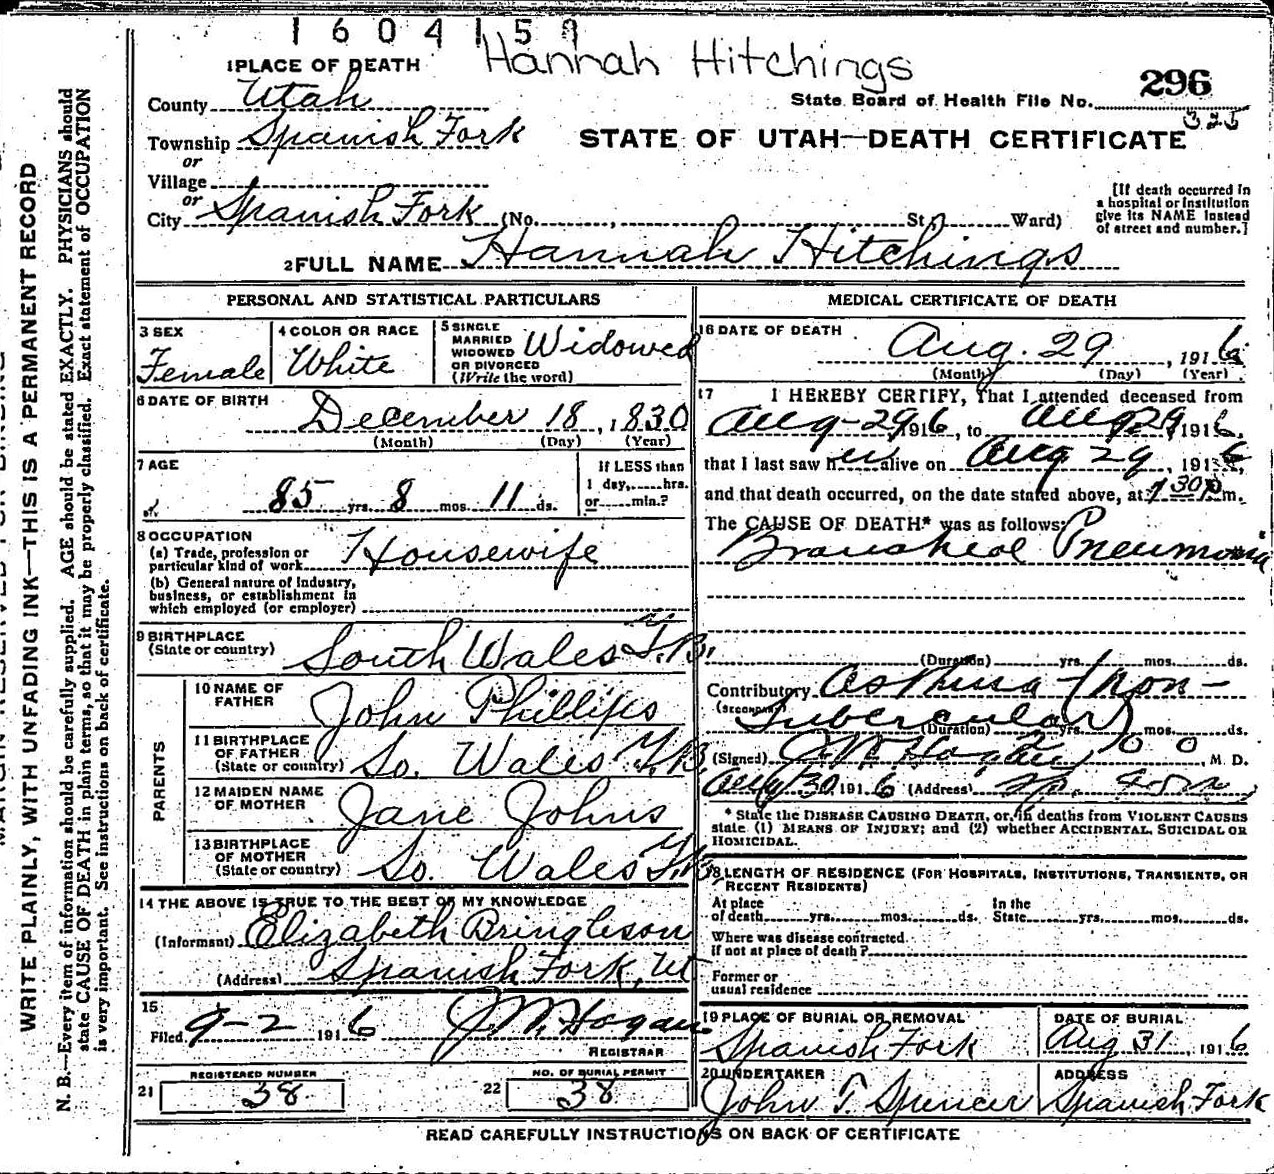 1604159
Hannah Hitchings
1 PLACE OF DEATH
296
County Utah
State Board of Health File No.
325
Township Spanish Fork
STATE OF UTAH—DEATH CERTIFICATE
or
Village
or
City Spanish Fork (No. , St.; Ward)
[If death occurred in
a hospital or institution
give its NAME instead
of street and number.]
2 FULL NAME Hannah Hitchings
PERSONAL AND STATISTICAL PARTICULARS
3 SEX
Female
4 COLOR OR RACE
White
5 SINGLE
MARRIED
WIDOWED
OR DIVORCED
(Write the word)
Widowed
6 DATE OF BIRTH
December 18, 1830
(Month) (Day) (Year)
7 AGE
85 yrs. 8 mos. 11 ds.
If LESS than
1 day, hrs.
or min.?
8 OCCUPATION
(a) Trade, profession or
particular kind of work Housewife
(b) General nature of Industry,
business, or establishment in
which employed (or employer)
9 BIRTHPLACE
(State or country) South Wales
PARENTS
10 NAME OF
FATHER John Phillips
11 BIRTHPLACE
OF FATHER
(State or country) So. Wales
12 MAIDEN NAME
OF MOTHER Jane Johns
13 BIRTHPLACE
OF MOTHER
(State or country) So. Wales
14 THE ABOVE IS TRUE TO THE BEST OF MY KNOWLEDGE
(Informant) Elizabeth Bringleson
(Address) Spanish Fork, Ut
15
Filed 9-2 1916 J. W. Hogan
REGISTRAR
REGISTERED NUMBER
21 38
NO. OF BURIAL PERMIT
22 38
MEDICAL CERTIFICATE OF DEATH
16 DATE OF DEATH
Aug. 29, 1916
(Month) (Day) (Year)
17 I HEREBY CERTIFY, That I attended deceased from
Aug-29 1916, to Aug 29, 1916,
that I last saw her alive on Aug 29, 1916,
and that death occurred, on the date stated above, at 30 P m.
The CAUSE OF DEATH* was as follows:
Bronsheal Pneumonia
(Duration) yrs. mos. ds.
Contributory Asthma - (non-
(SECONDARY) Tubercular)
(Duration) yrs. mos. ds.
(Signed) J. W. Hogan, M. D.
Aug 30 1916 (Address) Sp. Fork
* State the DISEASE CAUSING DEATH, or, in deaths from VIOLENT CAUSES
state (1) MEANS OF INJURY; and (2) whether ACCIDENTAL, SUICIDAL OR
HOMICIDAL.
18 LENGTH OF RESIDENCE (FOR HOSPITALS, INSTITUTIONS, TRANSIENTS, OR
RECENT RESIDENTS)
At place
of death yrs. mos. ds.
In the
State yrs. mos. ds.
Where was disease contracted
If not at place of death?
Former or
usual residence
19 PLACE OF BURIAL OR REMOVAL
Spanish Fork
DATE OF BURIAL
Aug 31, 1916
20 UNDERTAKER
John T. Spencer
ADDRESS
Spanish Fork
READ CAREFULLY INSTRUCTIONS ON BACK OF CERTIFICATE
WRITE PLAINLY, WITH UNFADING INK—THIS IS A PERMANENT RECORD
N. B.—Every item of information should be carefully supplied. AGE should be stated EXACTLY. PHYSICIANS should
state CAUSE OF DEATH in plain terms, so that it may be properly classified. Exact statement of OCCUPATION
is very important. See instructions on back of certificate.